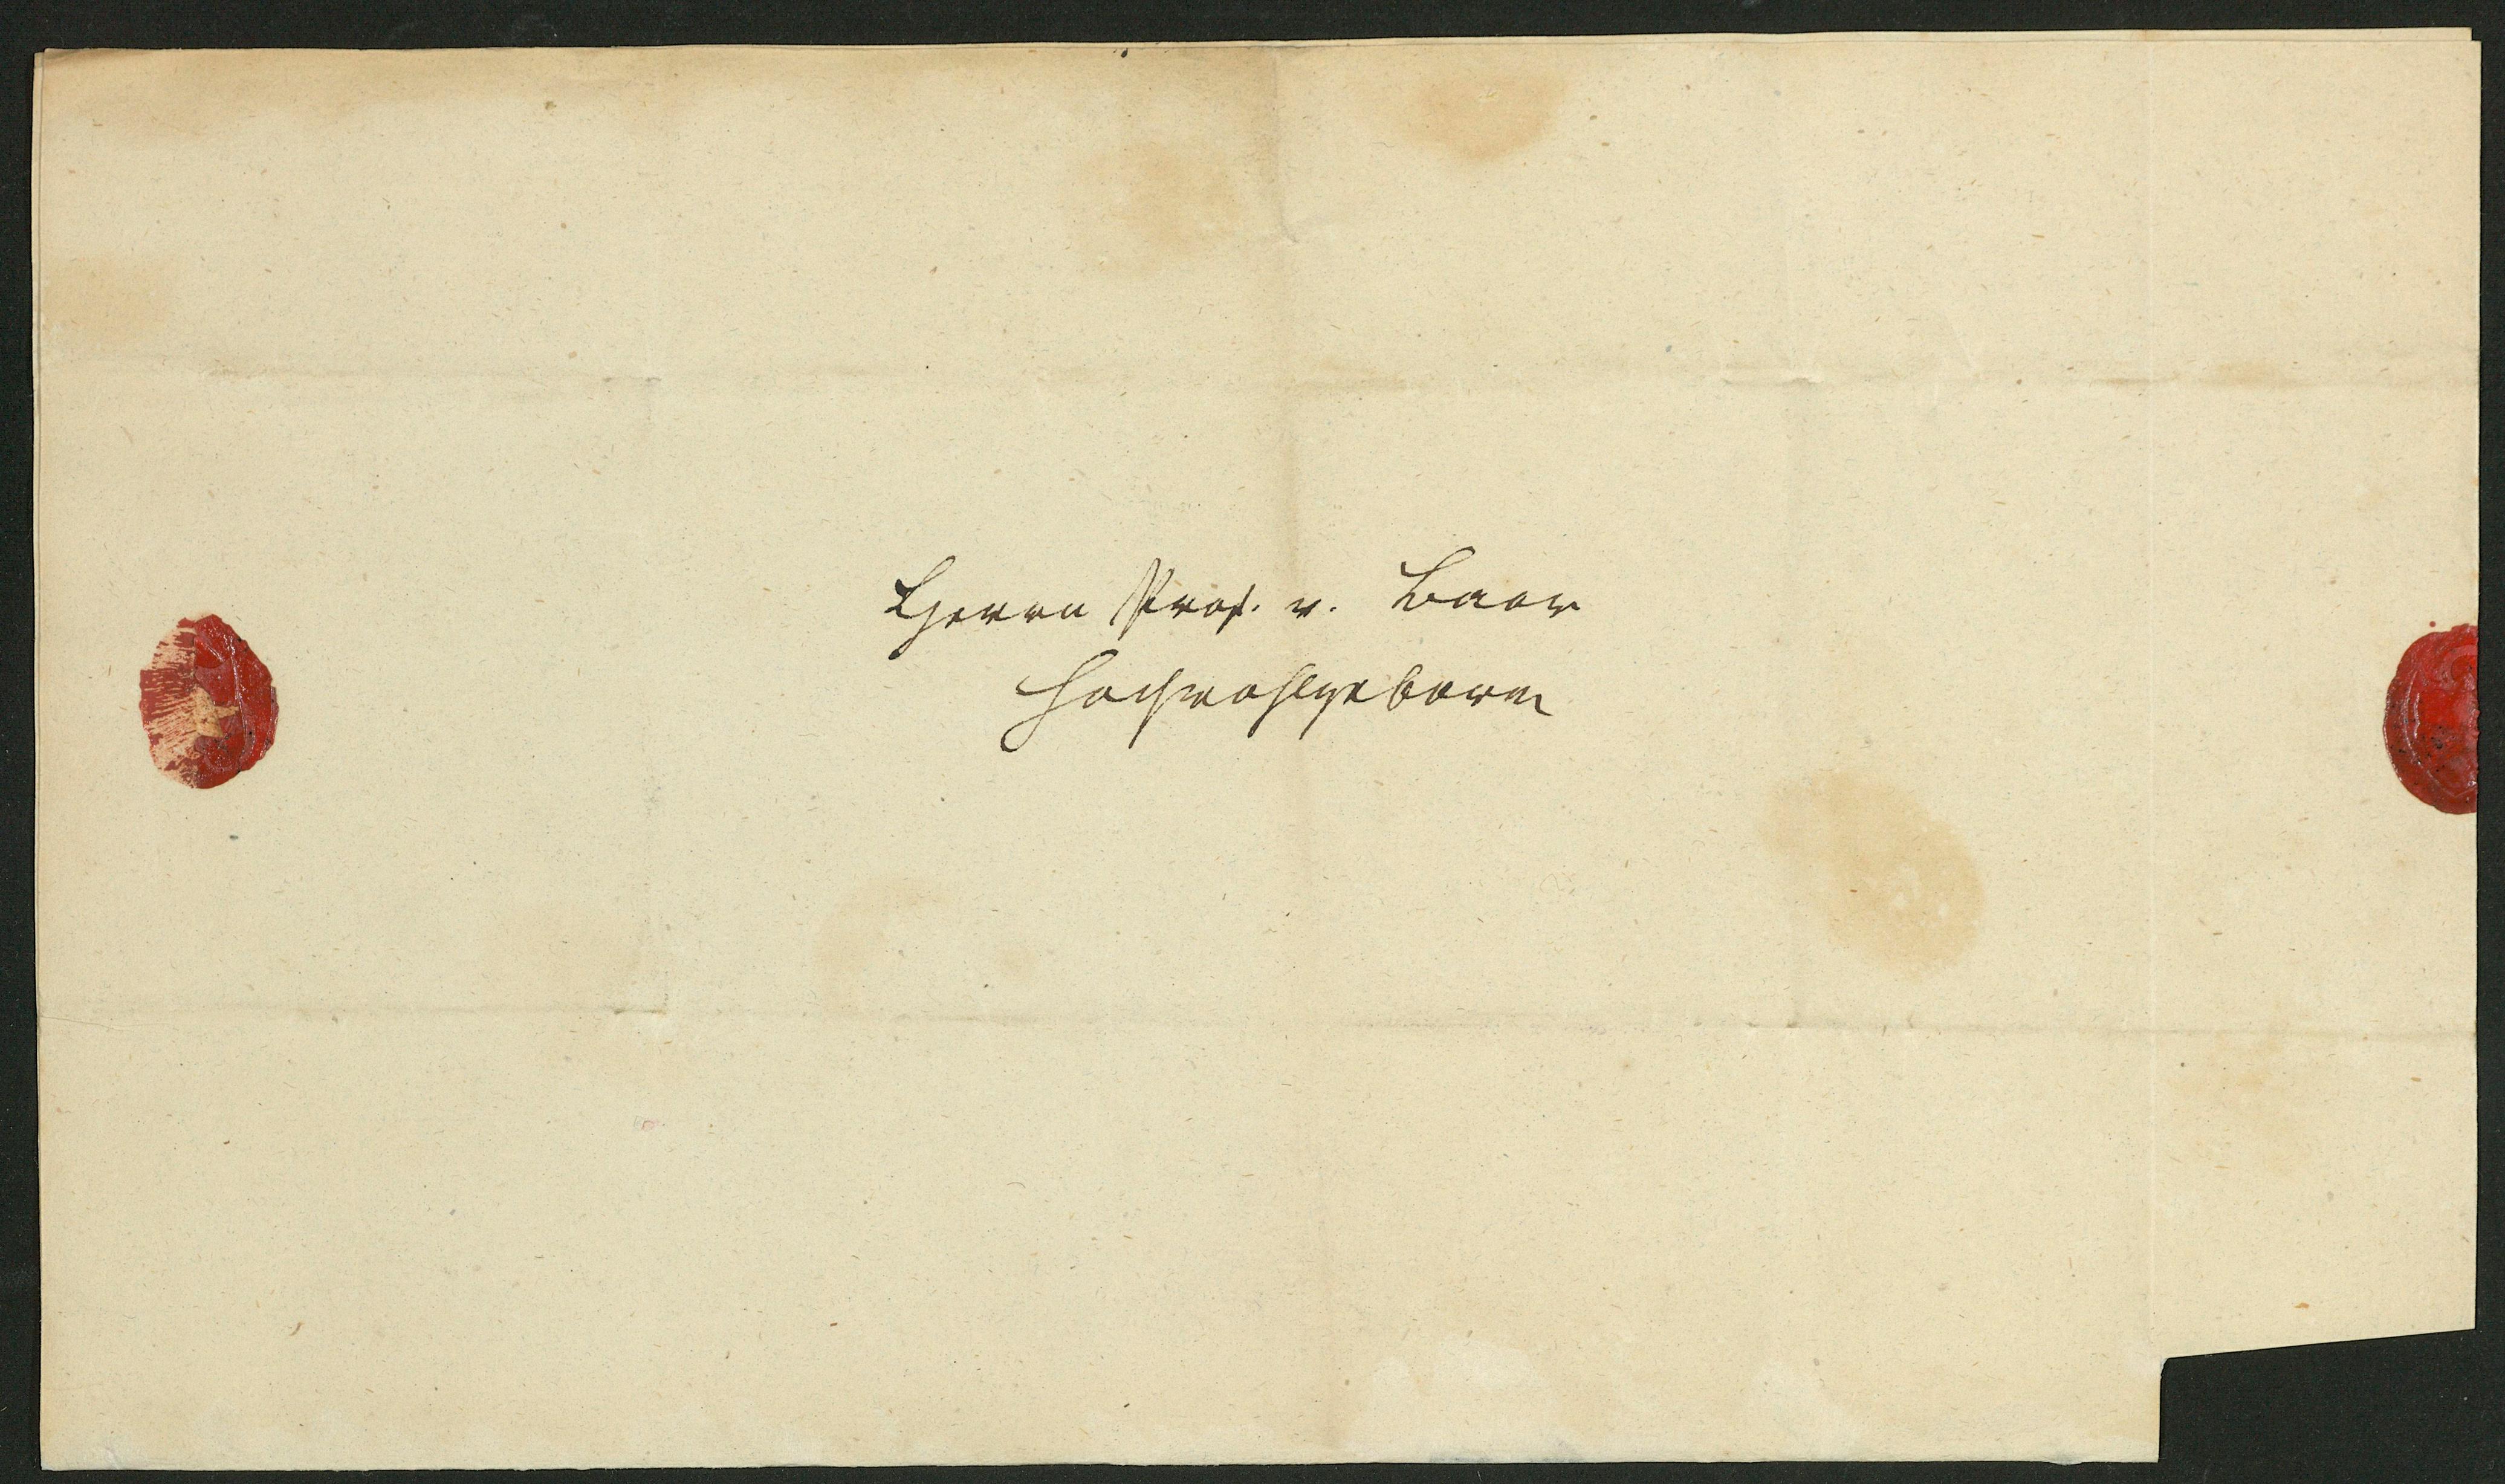 Herrn Prof. v. Baer
Hochwohlgeboren